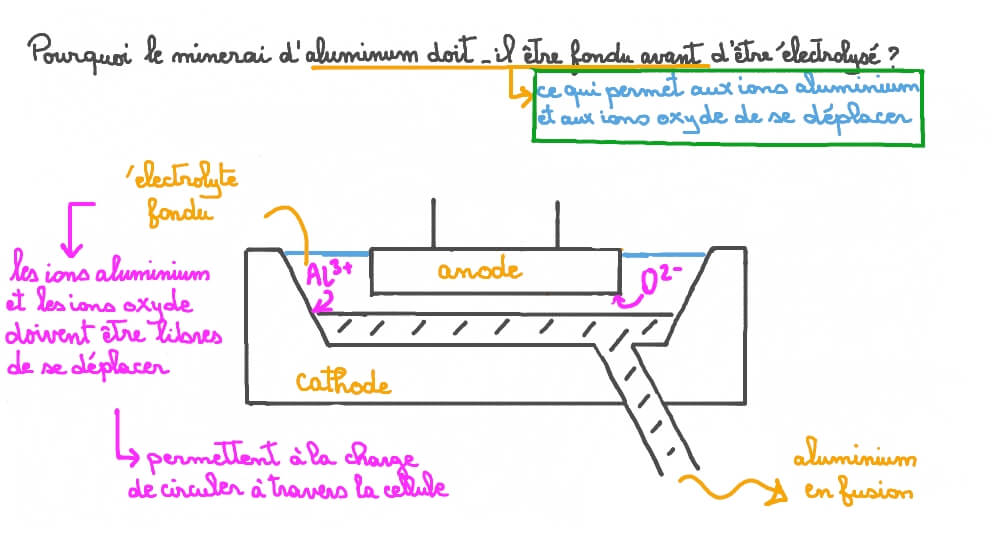 Pourquoi le minerai d'aluminum doit-il être fondu avant d'être électrolysé ?
ce qui permet aux ions aluminium
et aux ions oxyde de se déplacer
électrolyte
fondu
les ions aluminium
et les ions oxyde
doivent être libres
de se déplacer
Al³⁺
anode
O²⁻
cathode
permettent à la charge
de circuler à travers la cellule
aluminium
en fusion